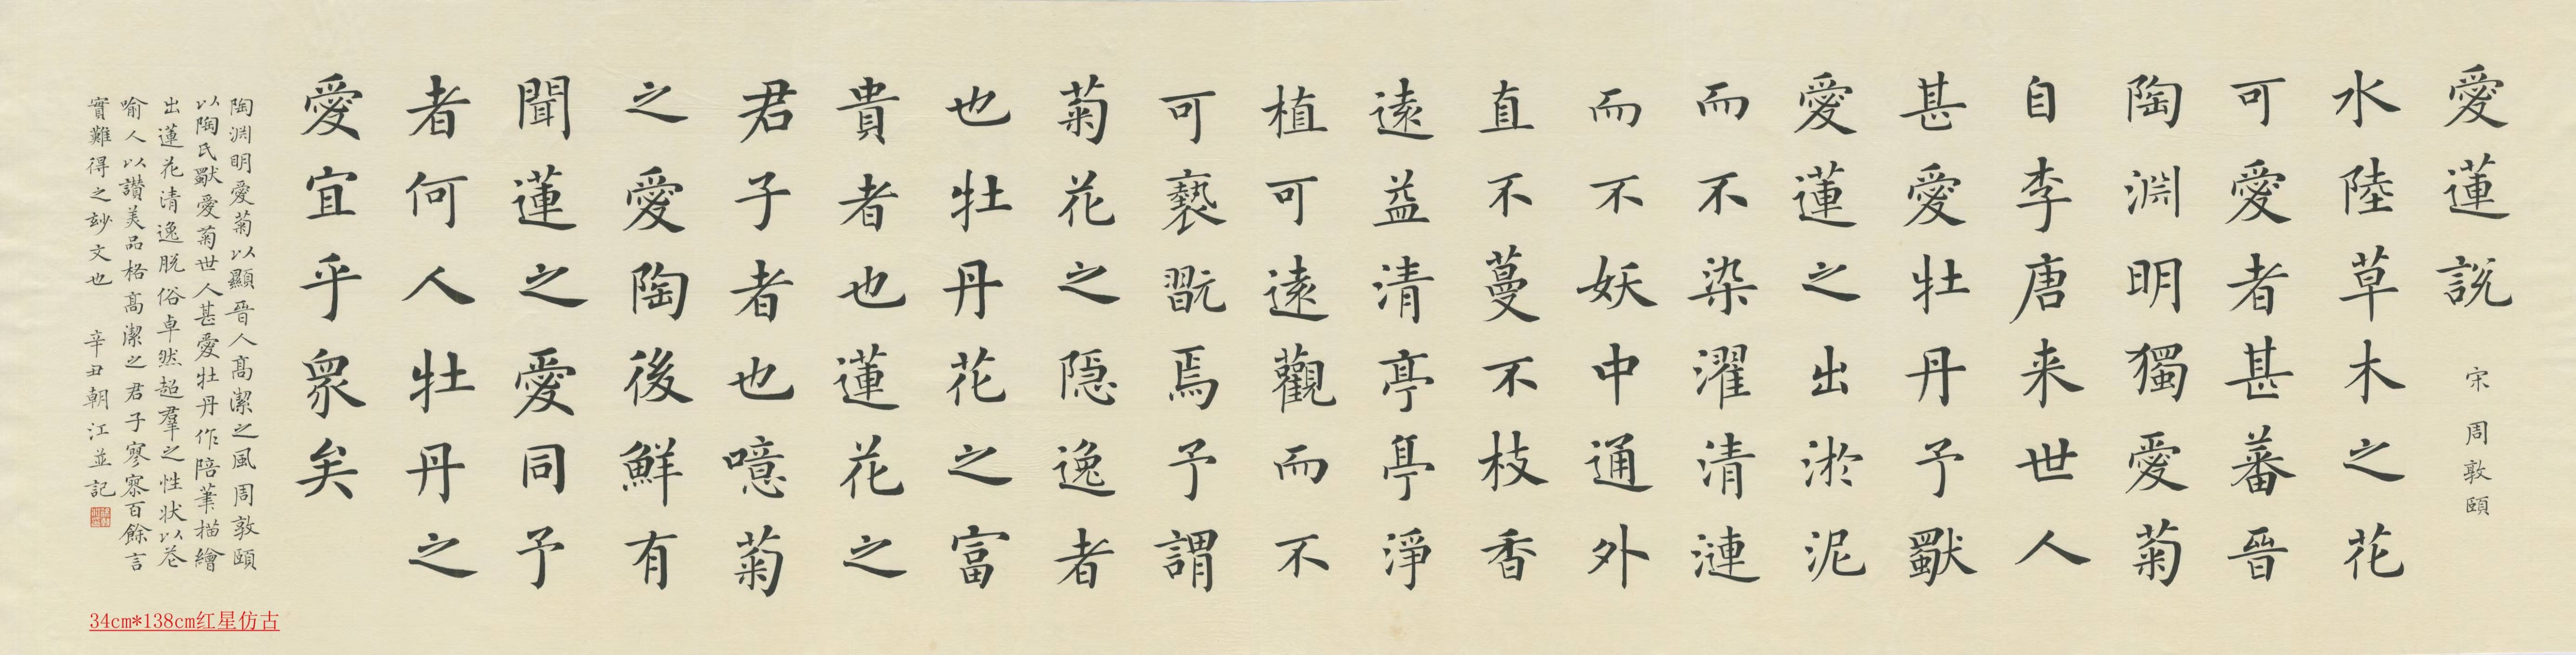 愛蓮說 宋 周敦頤
水陸草木之花
可愛者甚蕃晉
陶淵明獨愛菊
自李唐来世人
甚愛牡丹予獨
愛蓮之出淤泥
而不染濯清漣
而不妖中通外
直不蔓不枝香
遠益清亭亭淨
植可遠觀而不
可褻翫焉予謂
菊花之隱逸者
也牡丹花之富
貴者也蓮花之
君子者也噫菊
之愛陶後鮮有
聞蓮之愛同予
者何人牡丹之
愛宜乎眾矣
陶淵明愛菊以顯晉人髙潔之風周敦頤
以陶氏獨愛菊世人甚愛牡丹作陪筆描繪
出蓮花清逸脫俗卓然超羣之性狀以花
喻人以讚美品格髙潔之君子寥寥百餘言
實難得之玅文也 辛丑朝江並記
34cm*138cm红星仿古